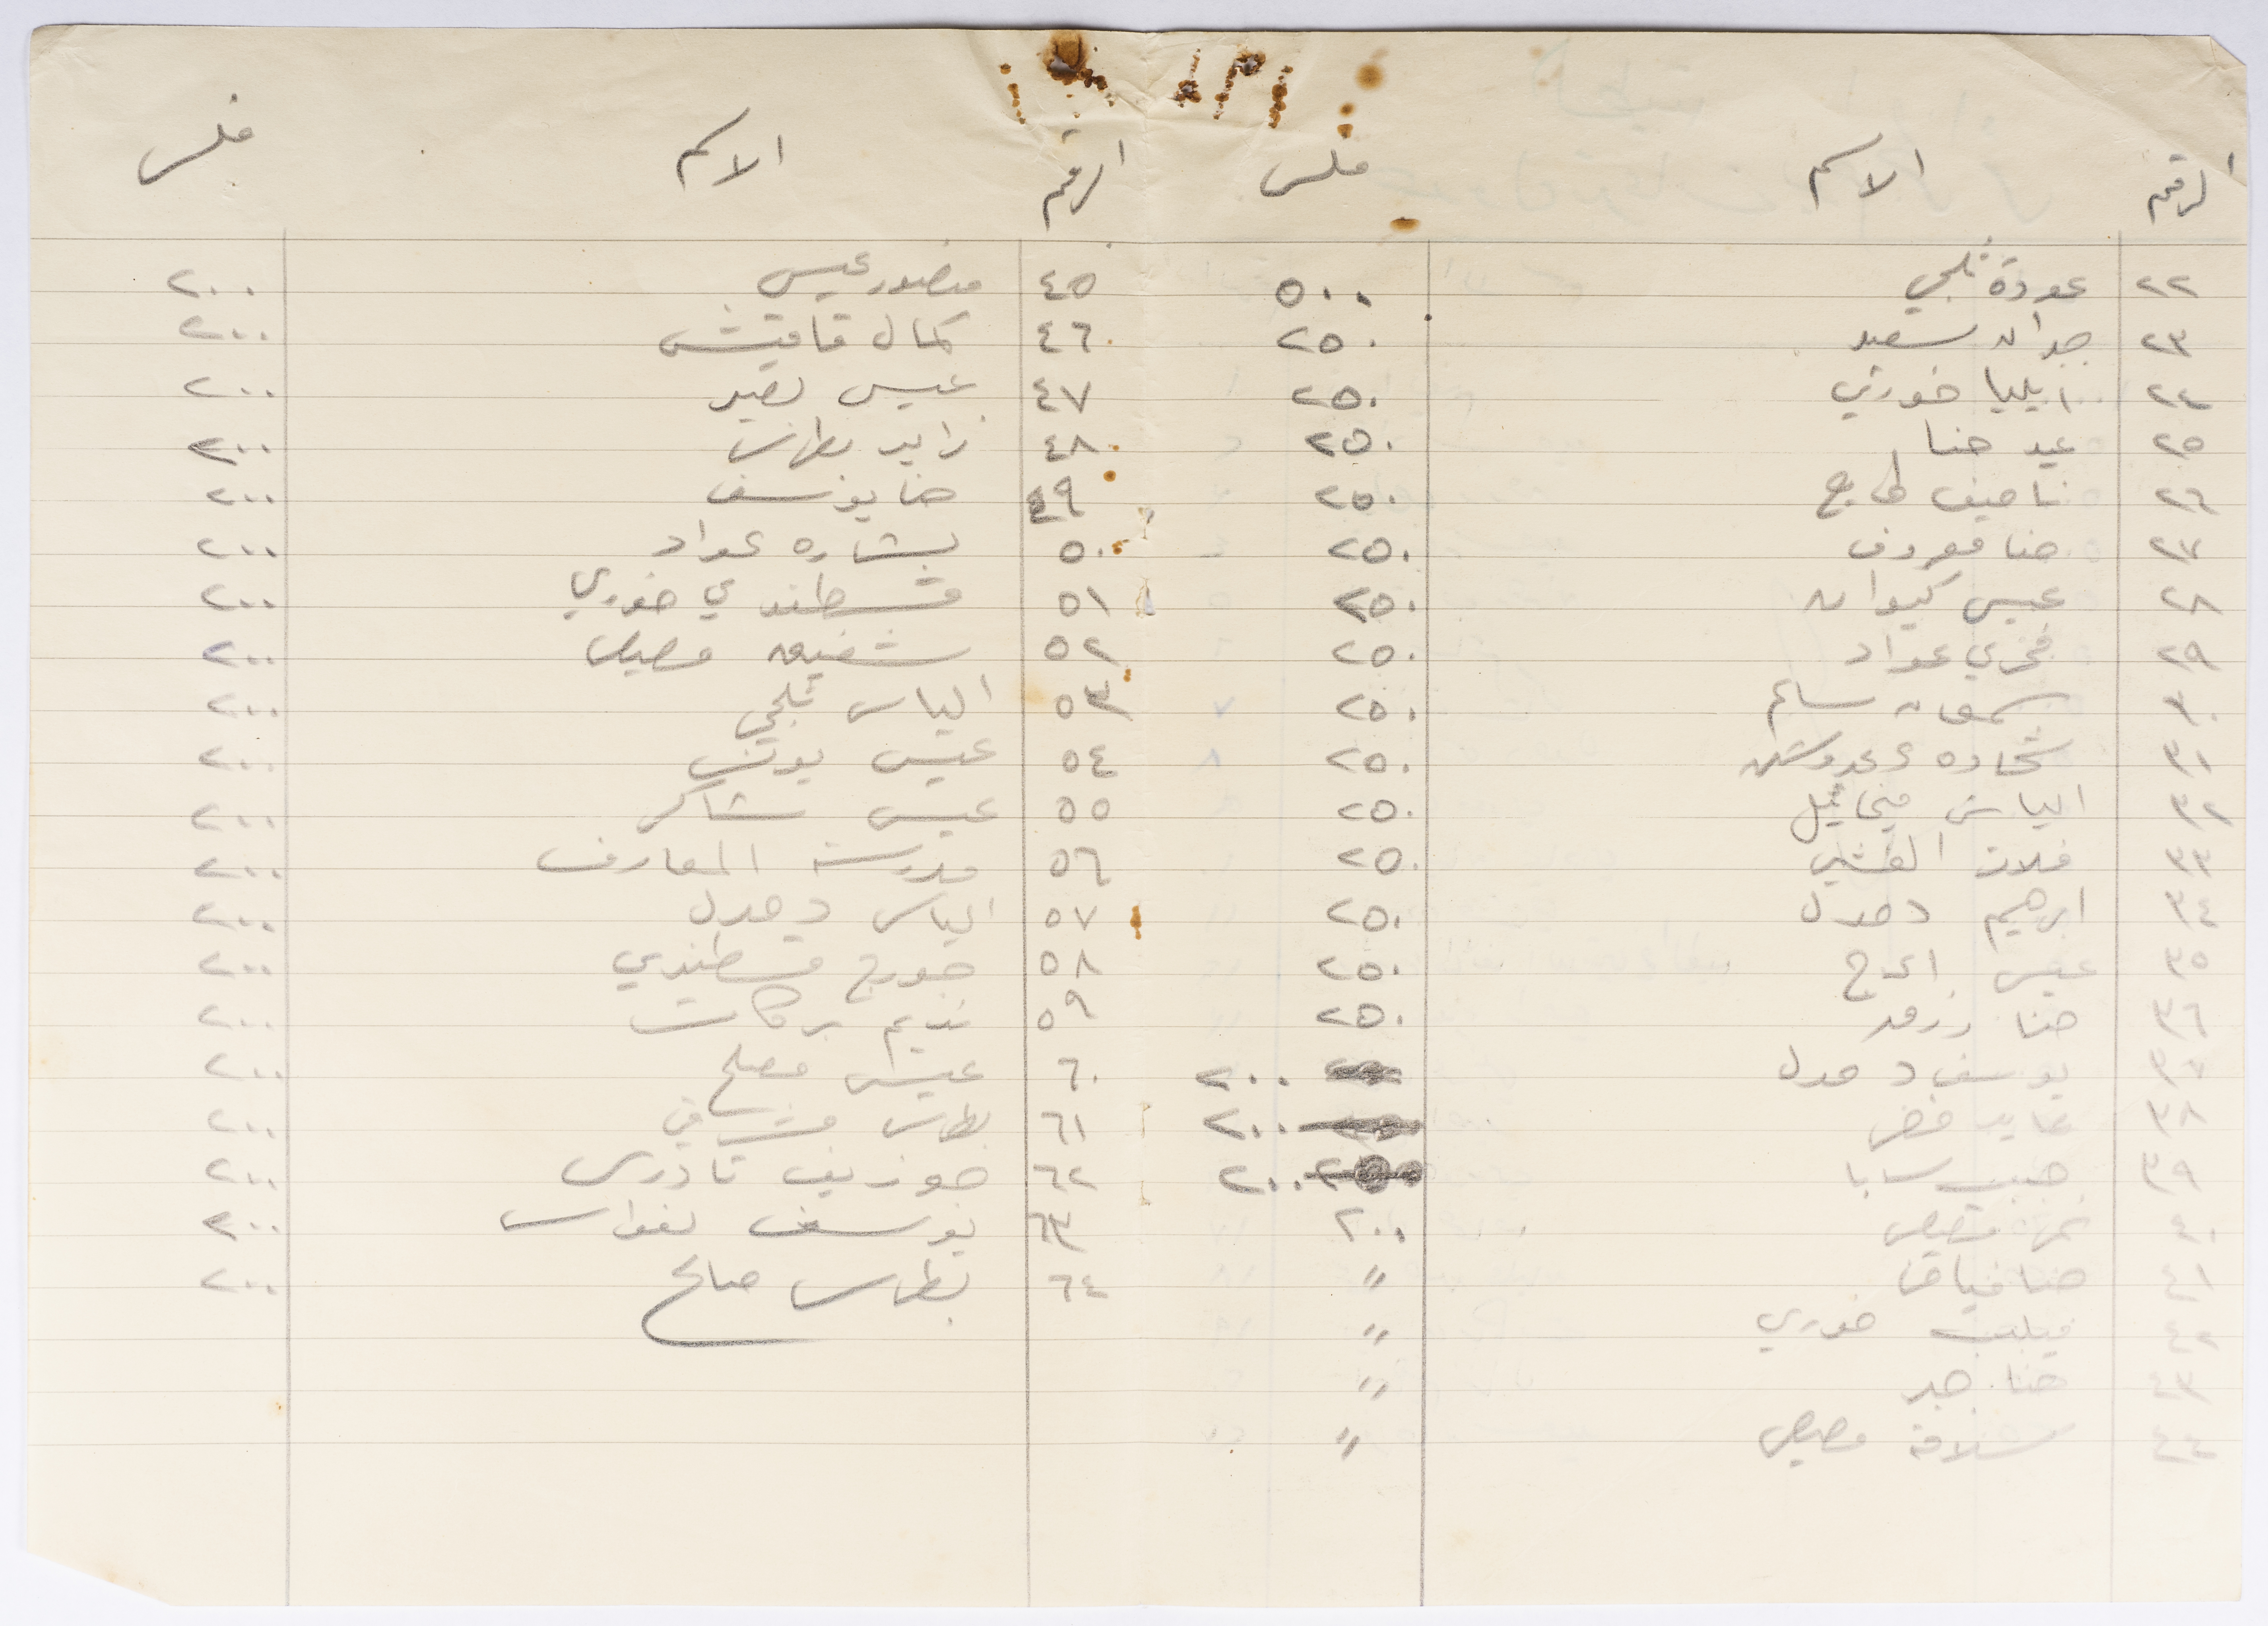 الرقم الاسم فلس
٢٢ عودة ثلجي ٥٠٠
٢٣ جدان سعيد ٢٥٠
٢٤ ايليا خوري ٢٥٠
٢٥ عيد حنا ٢٥٠
٢٦ ناصيف ٢٥٠
٢٧ حنا معروف ٢٥٠
٢٨ عيسى كيوان ٢٥٠
٢٩ فخري عواد ٢٥٠
٣٠ سمعان سالم ٢٥٠
٣١ شحاده ٢٥٠
٣٢ الياس ميخائيل ٢٥٠
٣٣ ٢٥٠
٣٤ ابرهيم دحدل ٢٥٠
٣٥ عيسى الاعرج ٢٥٠
٣٦ حنا ٢٥٠
٣٧ يوسف دحدل ٢٠٠
٣٨ عايد خضر ٢٠٠
٣٩ حبيب سابا ٢٠٠
٤٠ مصيص ٢٠٠
٤١ حنا "
٤٢ فيليب خوري "
٤٣ حنا جبر "
٤٤ سلامة مصيص "
الرقم الاسم فلس
٤٥ منصور عيسى ٢٠٠
٤٦ كمال قاقيش ٢٠٠
٤٧ عيسى نصير ٢٠٠
٤٨ زايد بطرس ٢٠٠
٤٩ حنا يوسف ٢٠٠
٥٠ بشاره عواد ٢٠٠
٥١ قسطندي خوري ٢٠٠
٥٢ شفيق مصيص ٢٠٠
٥٣ الياس ثلجي ٢٠٠
٥٤ عيسى يونس ٢٠٠
٥٥ عيسى شاكر ٢٠٠
٥٦ مدرسة المعارف ٢٠٠
٥٧ الياس دحدل ٢٠٠
٥٨ جورج قسطندي ٢٠٠
٥٩ نديم بركات ٢٠٠
٦٠ عيسى مصلح ٢٠٠
٦١ بطرس مشرقي ٢٠٠
٦٢ جوزيف تادرس ٢٠٠
٦٣ يوسف نواس ٢٠٠
٦٤ بطرس صالح ٢٠٠